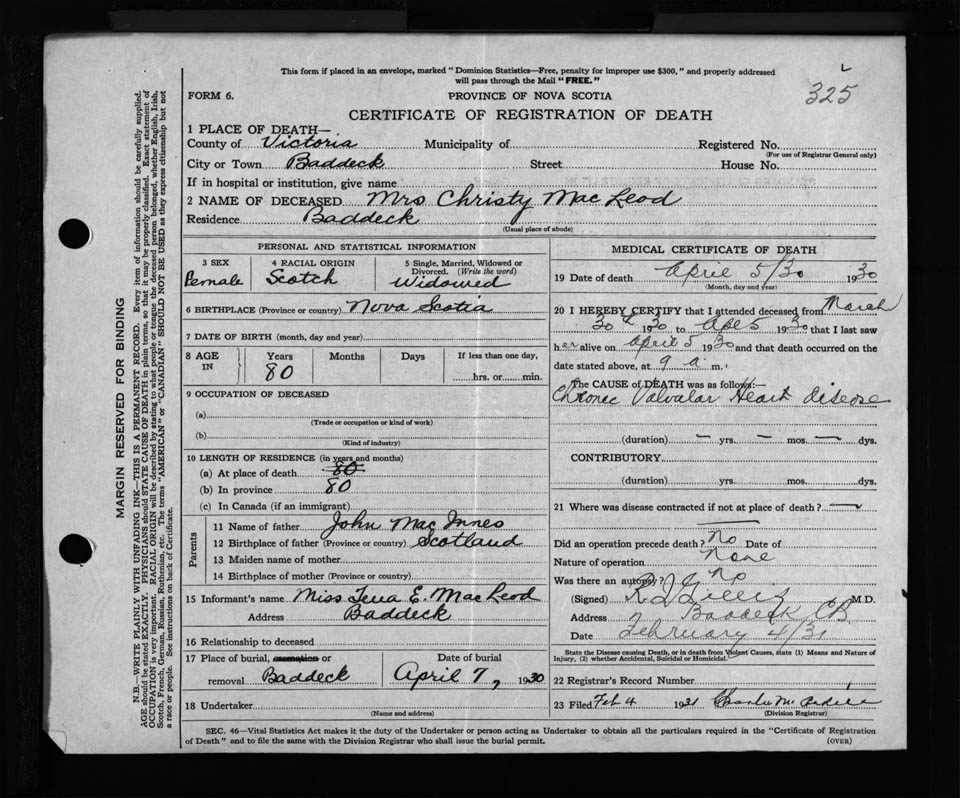 This form if placed in an envelope, marked "Dominion Statistics—Free, penalty for improper use $300," and properly addressed
will pass through the Mail "FREE."
325
FORM 6.
PROVINCE OF NOVA SCOTIA
CERTIFICATE OF REGISTRATION OF DEATH
1 PLACE OF DEATH—
County of Victoria Municipality of Registered No.
(For use of Registrar General only)
City or Town Baddeck Street House No.
If in hospital or institution, give name
2 NAME OF DECEASED Mrs Christy Mac Leod
Residence Baddeck
(Usual place of abode)
PERSONAL AND STATISTICAL INFORMATION
3 SEX 4 RACIAL ORIGIN 5 Single, Married, Widowed or Divorced. (Write the word)
Female Scotch Widowed
6 BIRTHPLACE (Province or country) Nova Scotia
7 DATE OF BIRTH (month, day and year)
8 AGE IN Years Months Days If less than one day,
80 hrs. or min.
9 OCCUPATION OF DECEASED
(a)
(Trade or occupation or kind of work)
(b)
(Kind of industry)
10 LENGTH OF RESIDENCE (in years and months)
(a) At place of death 80
(b) In province 80
(c) In Canada (if an immigrant)
Parents
11 Name of father John Mac Innes
12 Birthplace of father (Province or country) Scotland
13 Maiden name of mother
14 Birthplace of mother (Province or country)
15 Informant's name Miss Tena E. Mac Leod
Address Baddeck
16 Relationship to deceased
17 Place of burial, cremation or Date of burial
removal Baddeck April 7, 1930
18 Undertaker
(Name and address)
MEDICAL CERTIFICATE OF DEATH
19 Date of death April 5/30 1930
(Month, day and year)
20 I HEREBY CERTIFY that I attended deceased from March
30 1930 to Ap 5 1930 that I last saw
her alive on April 5 1930 and that death occurred on the
date stated above, at 9 a m.
The CAUSE of DEATH was as follows:—
Chronic Valvular Heart disease
(duration) — yrs. — mos. — dys.
CONTRIBUTORY
(duration) yrs. mos. dys.
21 Where was disease contracted if not at place of death? —
Did an operation precede death? No Date of
Nature of operation None
Was there an autopsy? No
(Signed) M.D.
Address Baddeck CB
Date February 4/31
State the Disease causing Death, or in death from Violent Causes, state (1) Means and Nature of
Injury, (2) whether Accidental, Suicidal or Homicidal.
22 Registrar's Record Number
23 Filed Feb 4 1931 Charles
(Division Registrar)
SEC. 46—Vital Statistics Act makes it the duty of the Undertaker or person acting as Undertaker to obtain all the particulars required in the "Certificate of Registration
of Death" and to file the same with the Division Registrar who shall issue the burial permit.
(OVER)
MARGIN RESERVED FOR BINDING
N.B.—WRITE PLAINLY WITH UNFADING INK—THIS IS A PERMANENT RECORD. Every item of information should be carefully supplied.
AGE should be stated EXACTLY. PHYSICIANS should STATE CAUSE OF DEATH in plain terms, so that it may be properly classified. Exact statement of
OCCUPATION is very important. RACIAL ORIGIN will be described by stating to what people or tongue the deceased person belonged, whether English, Irish,
Scotch, French, German, Russian, Ruthenian, etc. The terms "AMERICAN" or "CANADIAN" SHOULD NOT BE USED as they express citizenship but not
a race or people. See instructions on back of Certificate.